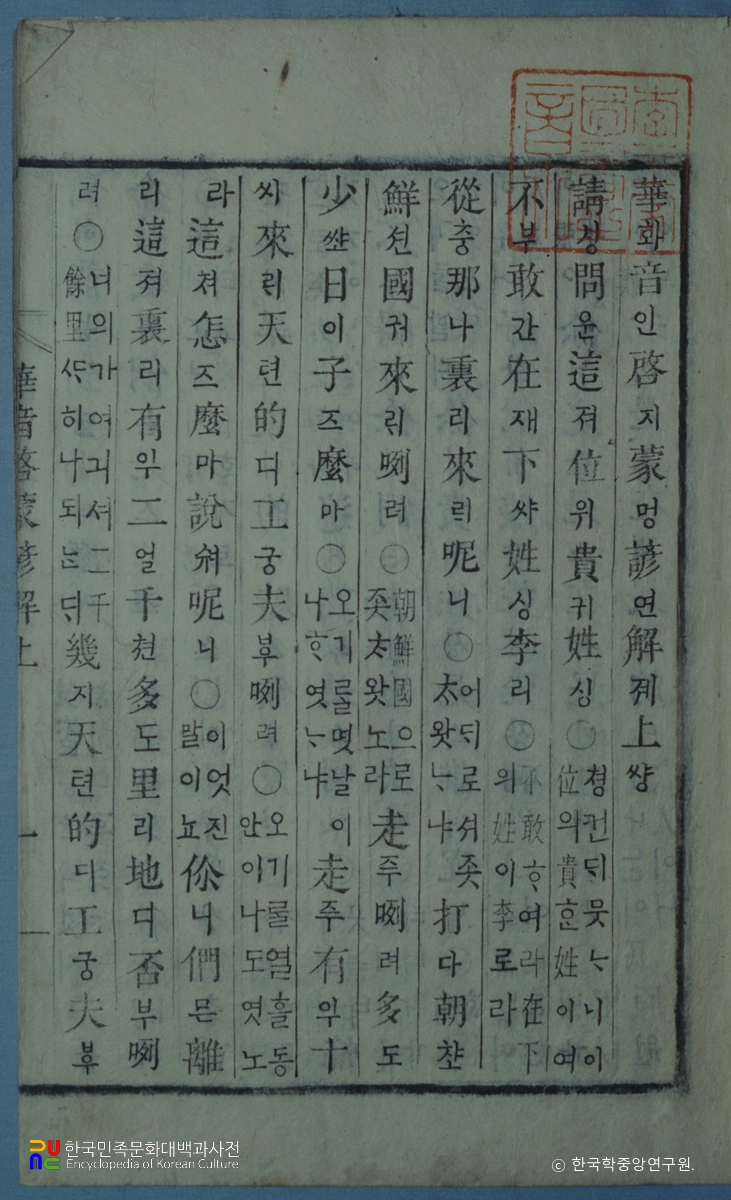 華화音인啓지蒙멍諺연解졔上썅
請칭問운這져位위貴귀姓싱○쳥컨ᄃᆡ뭇ᄂᆞ니이位의貴ᄒᆞᆫ姓이여
不부敢간在재下쌰姓싱李리○不敢ᄒᆞ여라在下의姓이李로라
從충那나裏리來ᄅᆡ呢니○어ᄃᆡ로셔죳太왓ᄂᆞ냐打다朝챠
鮮션國궈來ᄅᆡ咧려○朝鮮國으로죳太왓노라走주咧려多도
少쌰日이子즈麼마○오기ᄅᆞᆯ몃날이나ᄒᆞ엿ᄂᆞ냐走주有이十
씨來ᄅᆡ天텬的디工궁夫부咧려○오기ᄅᆞᆯ열흘동안이나도엿노
라這져怎즈麼마說숴呢니○이엇진말이뇨伱니們믄離
리這져裏리有이二얼千쳔多도里리地디否부咧
려○너의가여긔셔二千餘里ᄉᆞ히나되ᄂᆞᆫᄃᆡ幾지天텬的디工궁夫부
華音啓蒙諺解上 一
한국민족문화대백과사전
Encyclopedia of Korean Culture
ⓒ 한국학중앙연구원.